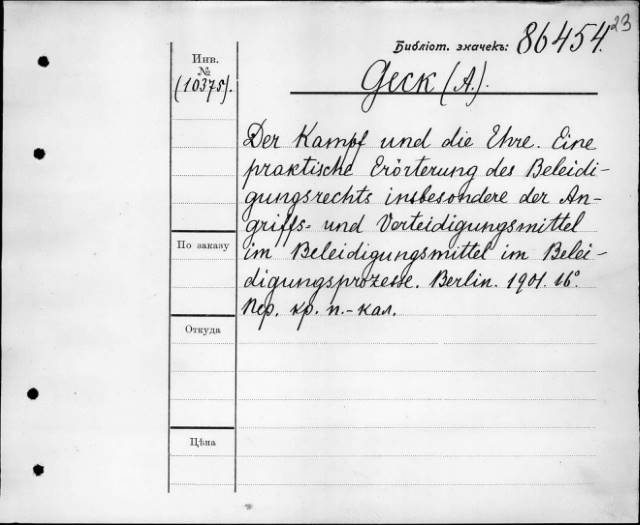 23
Библіот. значекъ: 86454.
Инв.
№
(10375).
Geck (A.).
Der Kampf und die Ehre. Eine
praktische Erörterung des Beleidi-
gungsrechts insbesondere der An-
griffs- und Verteidigungsmittel
im Beleidigungsmittel im Belei-
digungsprozesse. Berlin. 1901. 16°.
Пер. кр. п.-кал.
По заказу
Откуда
Цѣна